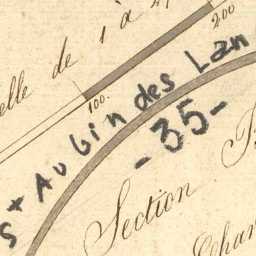 elle de 1 à
100.
200
St Aubin des Lan
- 35 -
Section B